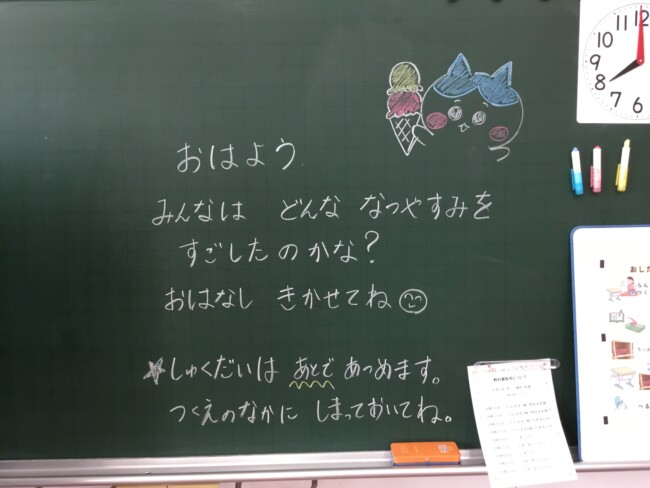 おはよう
みんなは どんな なつやすみを
すごしたのかな？
おはなし きかせてね
しゅくだいは あとで あつめます。
つくえのなかに しまっておいてね。
11 12
10
9
8
7 6
おした